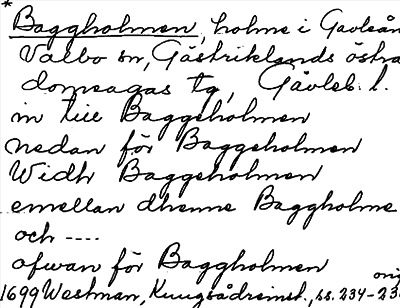 *
Baggholmen, holme i Gavleån
Valbo sn, Gästriklands östra
domsagas tg, Gävleb. l.
in till Baggeholmen
nedan för Baggeholmen
Widh Baggeholmen
emellan dhenne Baggholme
och ----
ofwan för Baggholmen
1699 Westman, Kungsådreinst., ss. 234-23